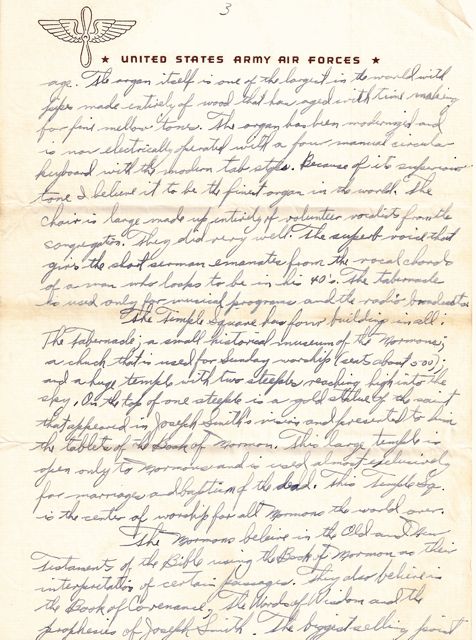 3
★ UNITED STATES ARMY AIR FORCES ★
age. The organ itself is one of the largest in the world with
pipes made entirely of wood that has aged with time making
for fine mellow tones. The organ has been modernized and
is now electrically operated with a four manual circular
keyboard with the modern tab style. Because of its superior
tone I believe it to be the finest organ in the world. The
choir is large made up entirely of volunteer vocalists from the
congregation. They did very well. The superb voice that
gives the short sermon emanates from the vocal chords
of a man who looks to be in his 40's. The tabernacle
is used only for musical programs and the radio broadcasts.
The Temple Square has four building in all:
The Tabernacle; a small historical museum of the Mormons;
a church that is used for Sunday worship (seats about 500);
and a huge temple with two steeples reaching high into the
sky. On the top of one steeple is a gold statue of the saint
that appeared in Joseph Smith's vision and presented to him
the tablets of the Book of Mormon. This large temple is
open only to Mormons and is used almost exclusively
for marriages and baptism of the dead. This Temple Sq.
is the center of worship for all Mormons the world over.
The Mormons beleive in the Old and New
Testaments of the Bible using the Book of Mormon as their
interpretation of certain passages. They also beleive in
the Book of Covenance, The Words of Wisdom and the
prophecies of Joseph Smith. The biggest selling point